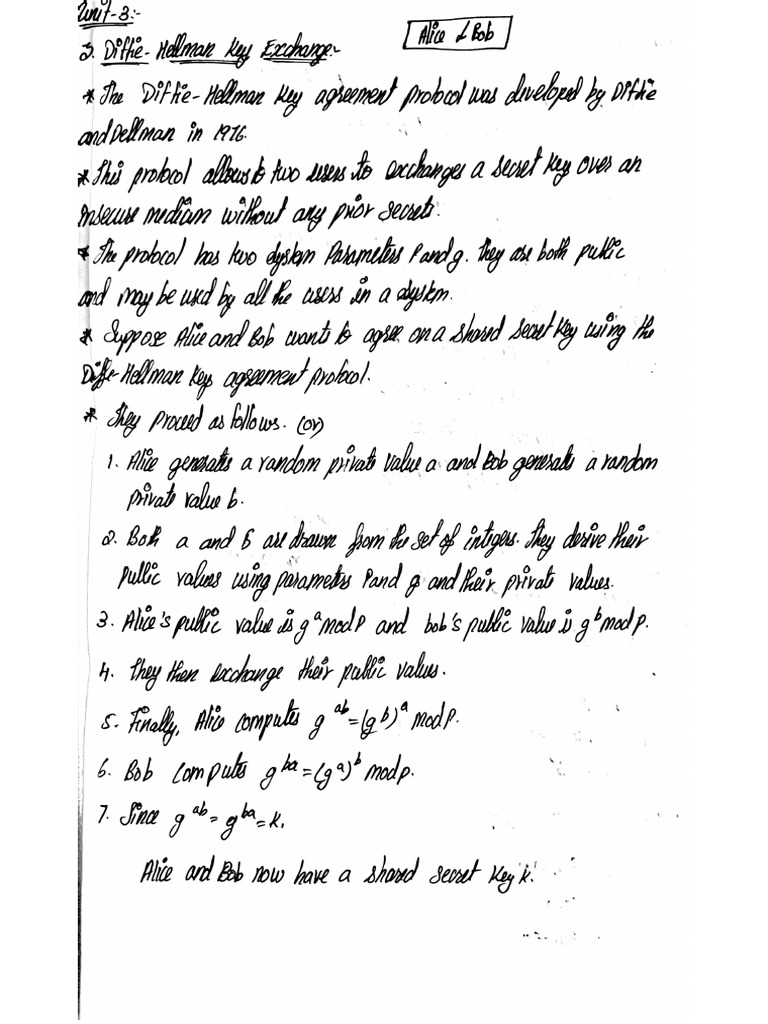 Unit-3:-
3. Diffie-Hellman Key Exchange:-
Alice & Bob
* The Diffie-Hellman Key agreement protocol was developed by Diffie
and Dellman in 1976.
* This protocol allows to two users to exchanges a secret key over an
insecure medium without any prior secrets.
* The protocol has two system Parameters P and g. They are both public
and may be used by all the users in a system.
* Suppose Alice and Bob wants to agree on a shared secret key using the
Diffe-Hellman Key agreement protocol.
* They proceed as follows. (or)
1. Alice generates a random private value a and Bob generate a random
private value b.
2. Both a and b are drawn from the set of integers. They derive their
public values using parameters P and g and their private values.
3. Alice's public value is g^a mod P and bob's public value is g^b mod P.
4. They then exchange their public values.
5. Finally, Alice computes g^ab = (g^b)^a mod P.
6. Bob computes g^ba = (g^a)^b mod p.
7. Since g^ab = g^ba = K.
Alice and Bob now have a shared secret key k.